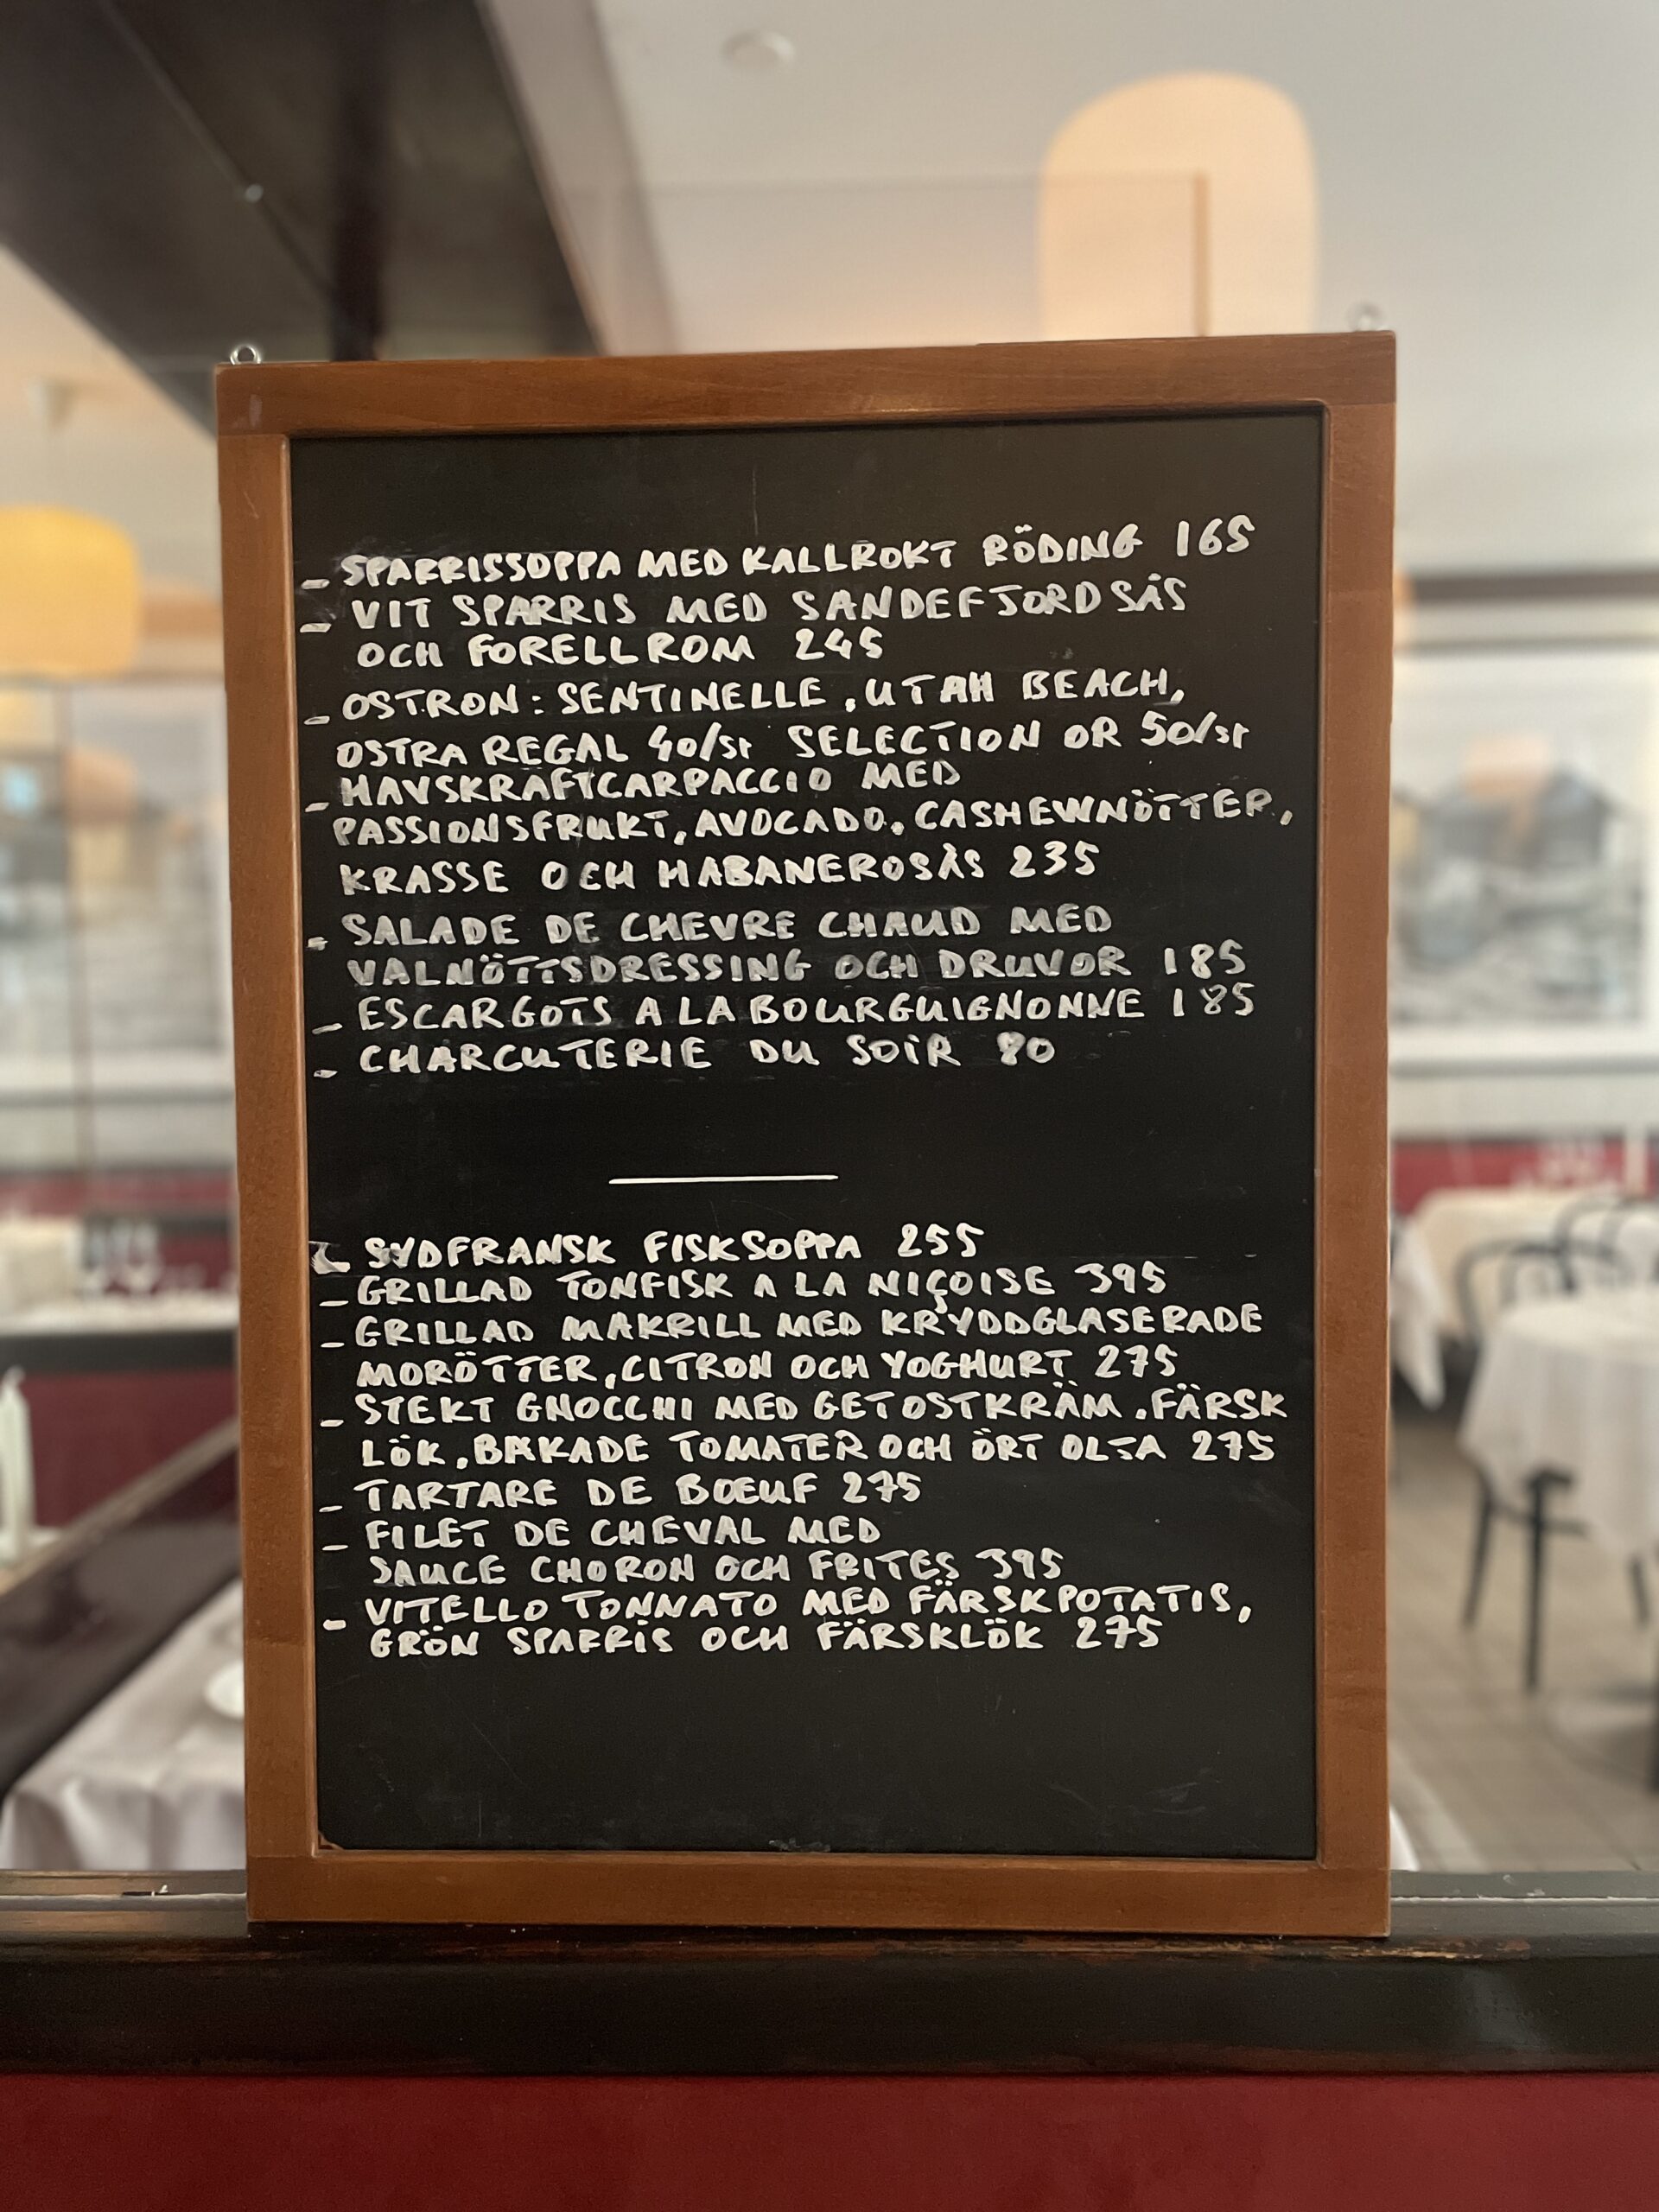 - SPARRISSOPPA MED KALLROKT RÖDING 165
- VIT SPARRIS MED SANDEFJORDSÅS
OCH FORELLROM 245
- OSTRON: SENTINELLE, UTAH BEACH,
OSTRA REGAL 40/ST SELECTION OR 50/ST
- HAVSKRÄFTCARPACCIO MED
PASSIONSFRUKT, AVOCADO, CASHEWNÖTTER,
KRASSE OCH HABANEROSÅS 235
- SALADE DE CHEVRE CHAUD MED
VALNÖTTSDRESSING OCH DRUVOR 185
- ESCARGOTS A LA BOURGUIGNONNE 185
- CHARCUTERIE DU SOIR 80
- SYDFRANSK FISKSOPPA 255
- GRILLAD TONFISK A LA NIÇOISE 395
- GRILLAD MAKRILL MED KRYDDGLASERADE
MORÖTTER, CITRON OCH YOGHURT 275
- STEKT GNOCCHI MED GETOSTKRÄM, FÄRSK
LÖK, BAKADE TOMATER OCH ÖRT OLJA 275
- TARTARE DE BŒUF 275
- FILET DE CHEVAL MED
SAUCE CHORON OCH FRITES 395
- VITELLO TONNATO MED FÄRSKPOTATIS,
GRÖN SPARRIS OCH FÄRSKLÖK 275